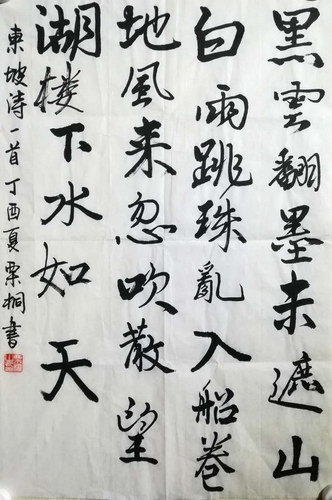 黑雲翻墨未遮山
白雨跳珠亂入船卷
地風来忽吹散望
湖楼下水如天
東坡诗一首丁酉夏栗桐書